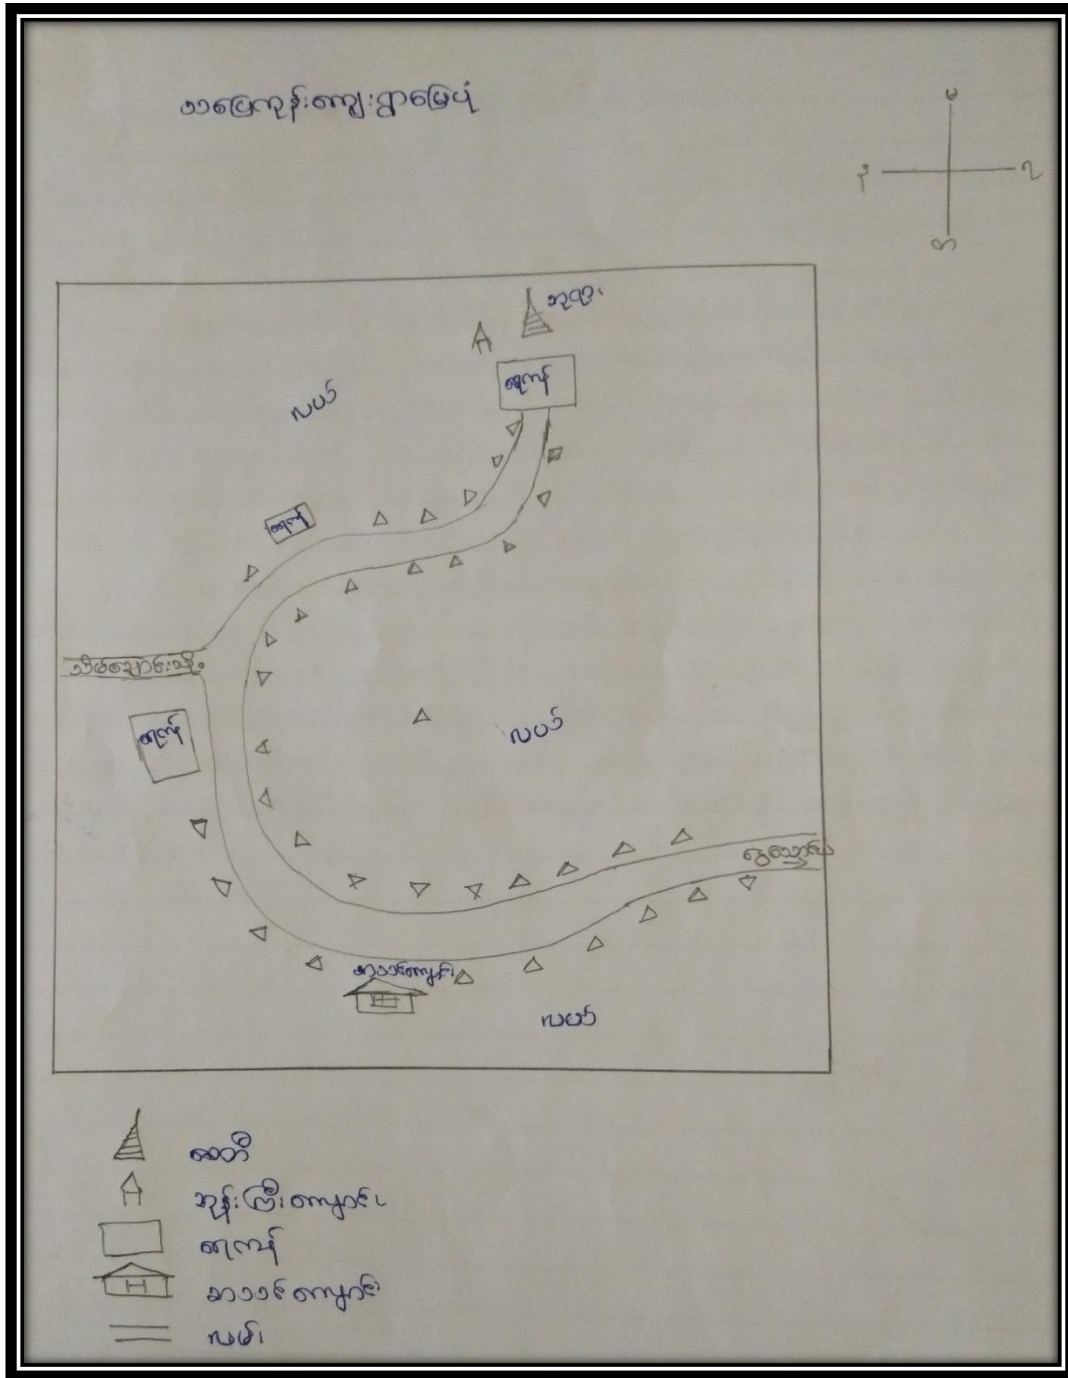 သပြေကုန်းကျေးရွာမြေပုံ
မ
န
ရ
တ
ဘုရား
ရေကန်
လယ်
ရေကန်
သိမ်ချောင်းသို့
ရေကန်
လယ်
စာသင်ကျောင်း
လယ်
စေတီ
ဘုန်းကြီးကျောင်း
ရေကန်
စာသင်ကျောင်း
လမ်း